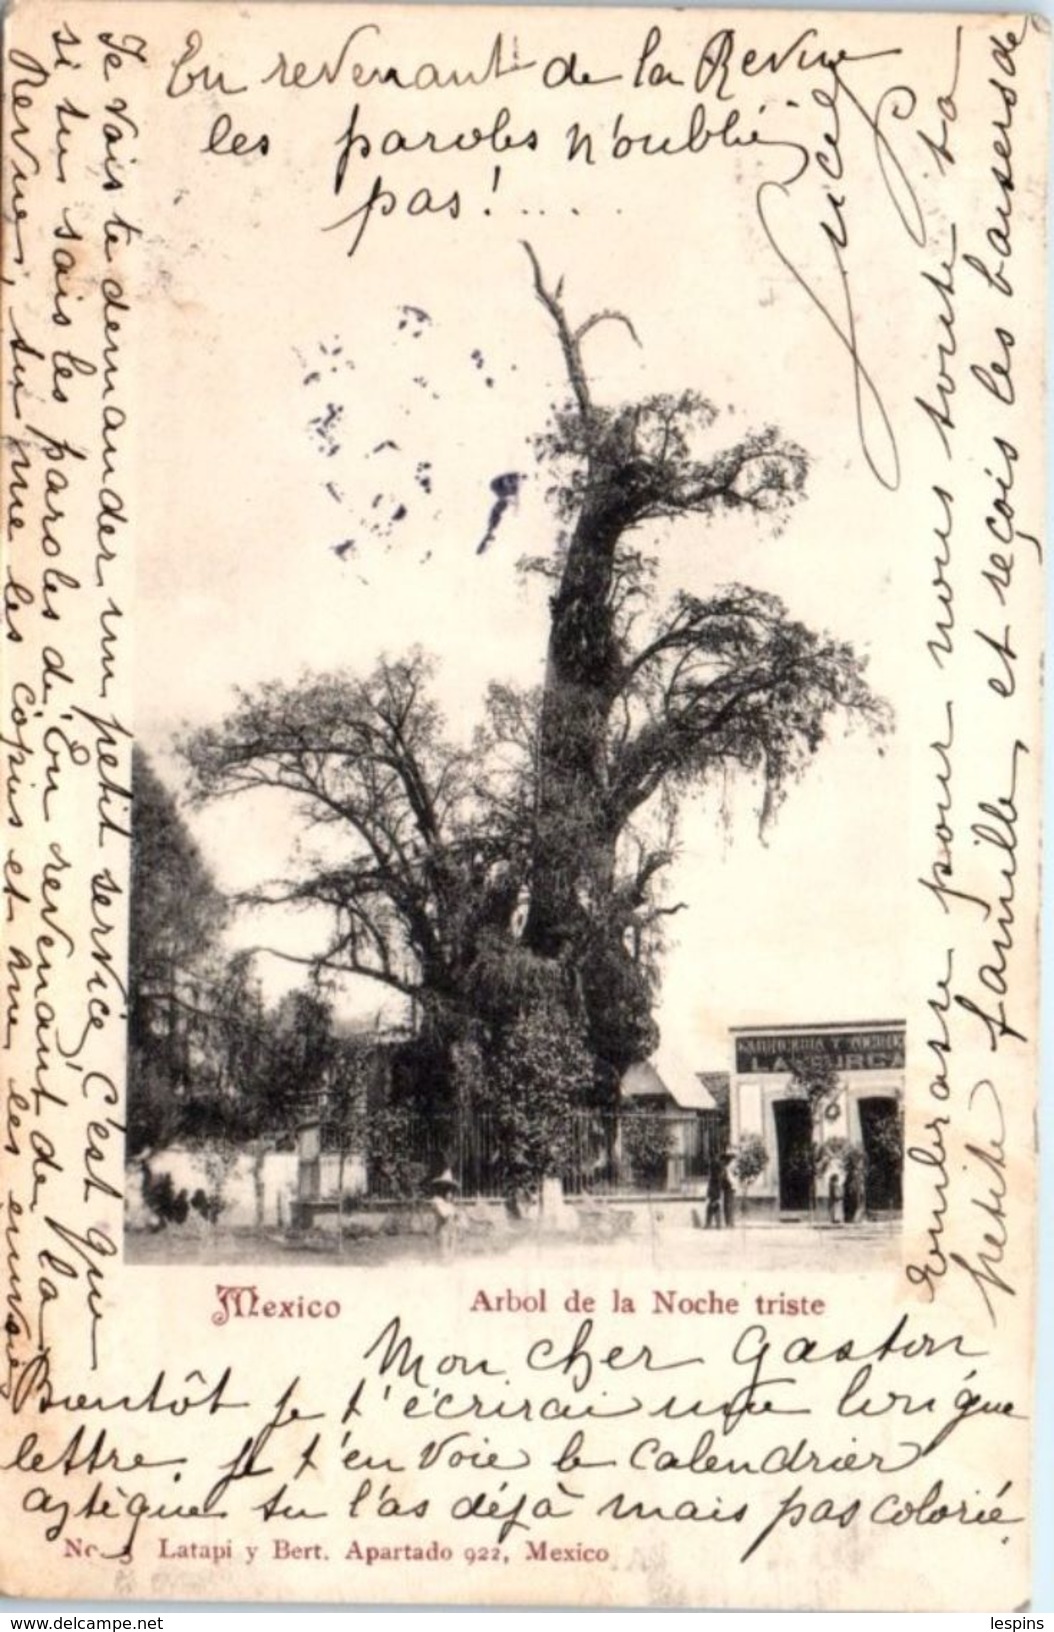 En revenant de la Revue
les paroles n'oublie
pas!.....
Lucel
Mexico
Arbol de la Noche triste
Mon cher Gaston
Bientôt je t'écrirai une longue
lettre. je t'envoie le calendrier
aztèque tu l'as déjà mais pas colorié.
Je vais te demander un petit service, c'est que
si tu sais les paroles d'En revenant de la
Revue, tu me les copies et me les envoies
Embrasse pour nous toute ta
petite famille, et reçois les baisers de
No. 5 Latapi y Bert. Apartado 922, Mexico
lespins